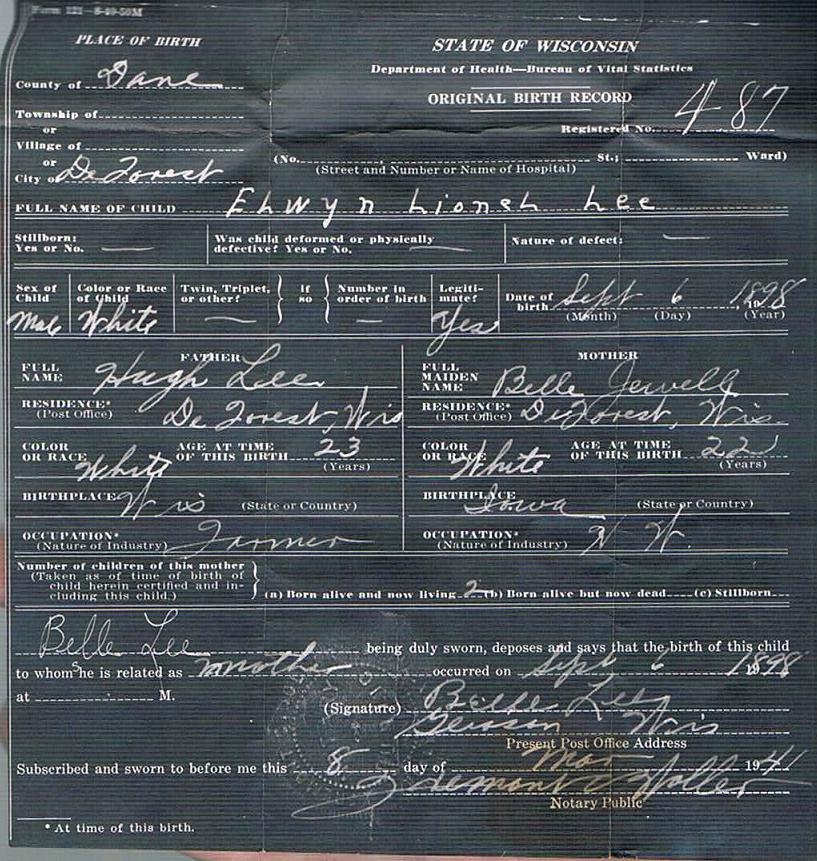 Form 121 - 8-40-50M
PLACE OF BIRTH
STATE OF WISCONSIN
Department of Health—Bureau of Vital Statistics
ORIGINAL BIRTH RECORD
County of Dane
Registered No. 487
Township of
or
Village of
or
City of De Forest
(No. , St.; Ward)
(Street and Number or Name of Hospital)
FULL NAME OF CHILD Elwyn Lionel Lee
Stillborn: Yes or No. —
Was child deformed or physically defective? Yes or No. —
Nature of defect: —
Sex of Child Male
Color or Race of Child White
Twin, Triplet, or other? —
If so
Number in order of birth —
Legitimate? Yes
Date of birth Sept 6 1898
(Month) (Day) (Year)
FATHER
FULL NAME Hugh Lee
RESIDENCE* (Post Office) De Forest, Wis
COLOR OR RACE White
AGE AT TIME OF THIS BIRTH 23 (Years)
BIRTHPLACE Wis (State or Country)
OCCUPATION* (Nature of Industry) Farmer
MOTHER
FULL MAIDEN NAME Belle Jewell
RESIDENCE* (Post Office) De Forest, Wis.
COLOR OR RACE White
AGE AT TIME OF THIS BIRTH 22 (Years)
BIRTHPLACE Iowa (State or Country)
OCCUPATION* (Nature of Industry) H. W.
Number of children of this mother
(Taken as of time of birth of
child herein certified and in-
cluding this child.)
(a) Born alive and now living 2 (b) Born alive but now dead (c) Stillborn
Belle Lee being duly sworn, deposes and says that the birth of this child
to whom she is related as mother occurred on Sept 6 1898
at M.
(Signature) Belle Lee
Wis
Present Post Office Address
Subscribed and sworn to before me this 8 day of Mar 1941
Notary Public
* At time of this birth.